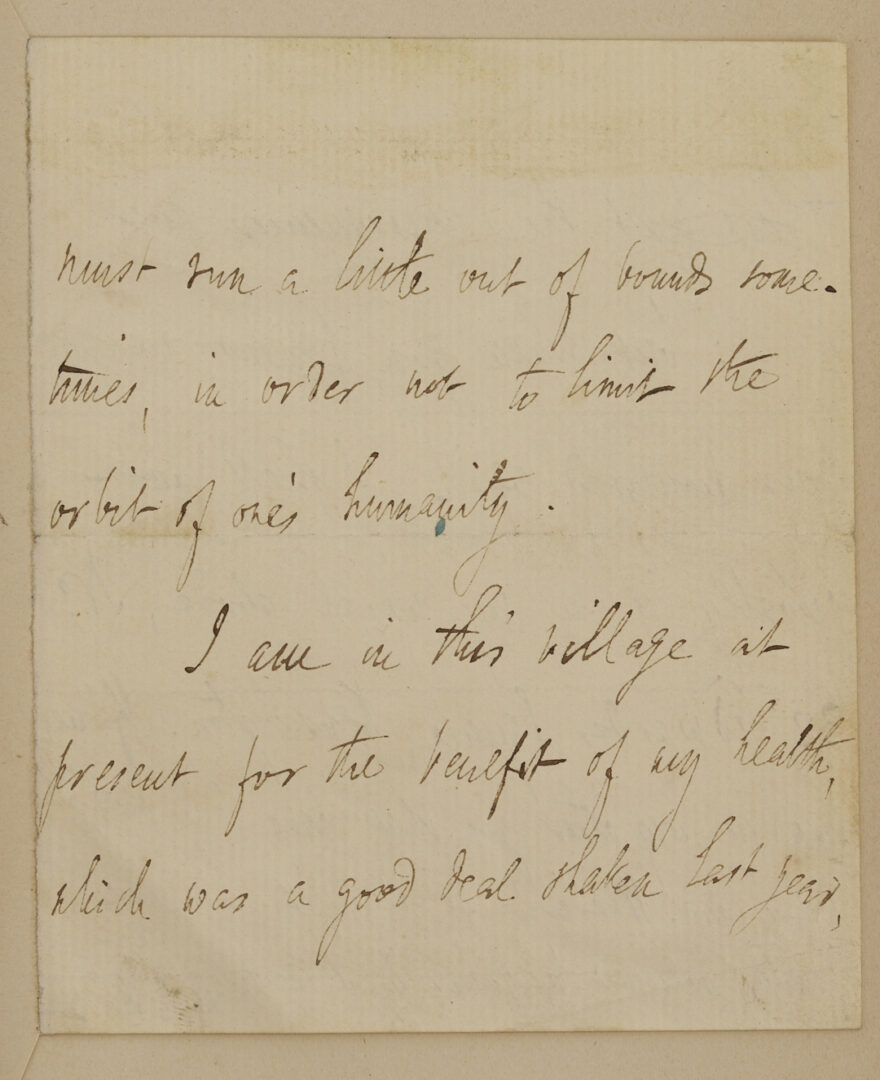 must run a little out of bounds some-
times, in order not to limit the
orbit of one's humanity.
I am in this village at
present for the benefit of my health,
which was a good deal shaken last year,